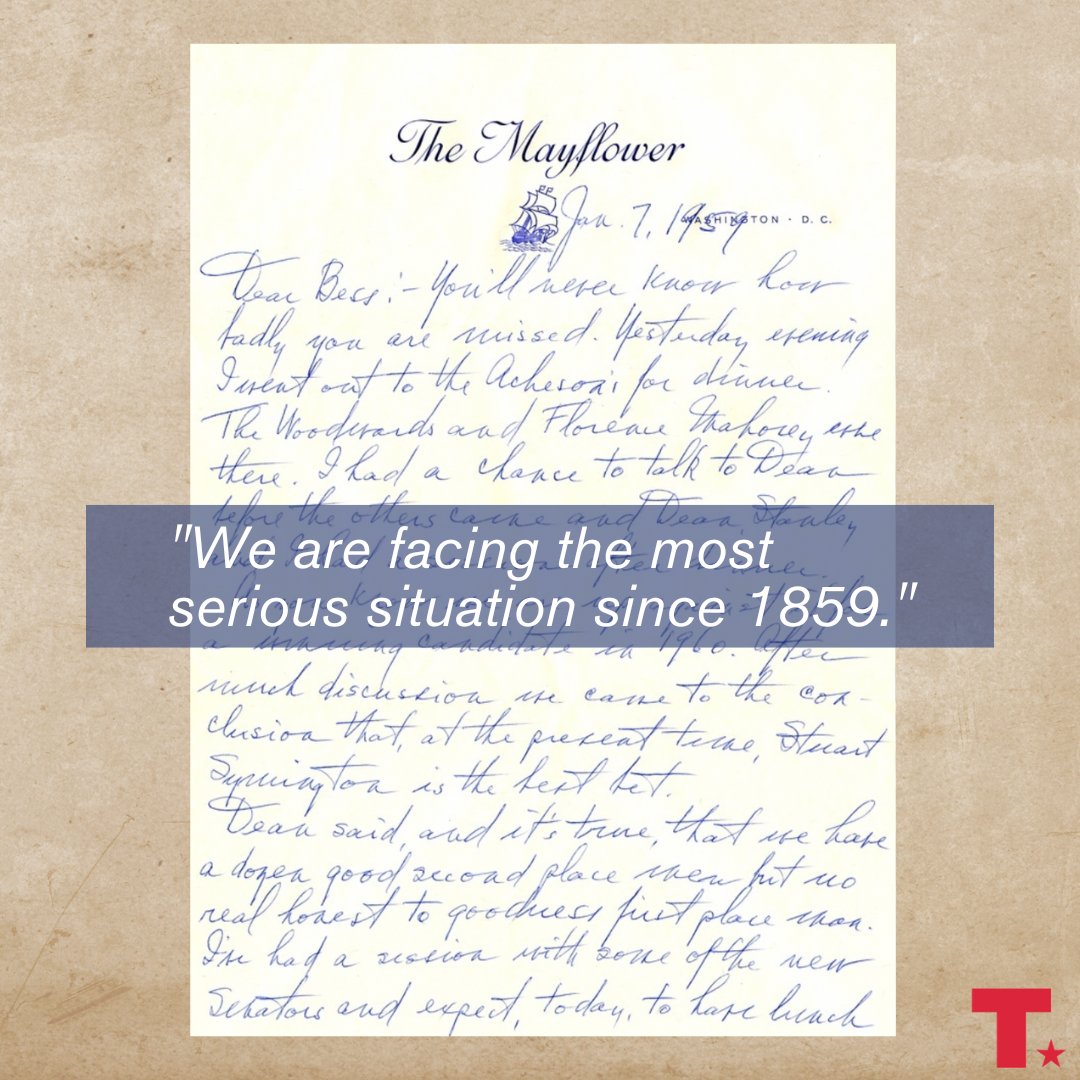 The Mayflower
WASHINGTON · D. C.
Jan. 7, 1959
Dear Bess:- You'll never know how
badly you are missed. Yesterday evening
I went out to the Acheson's for dinner.
The Woodwards and Florence Mahoney were
there. I had a chance to talk to Dean
before the others came and Dean, Stanley
and I had a after dinner.
"We are facing the most
serious situation since 1859."
a winning candidate in 1960. After
much discussion we came to the con-
clusion that, at the present time, Stuart
Symington is the best bet.
Dean said, and it's true, that we have
a dozen good second place men but no
real honest to goodness first place man.
I've had a session with some of the new
Senators and expect, today, to have lunch
T